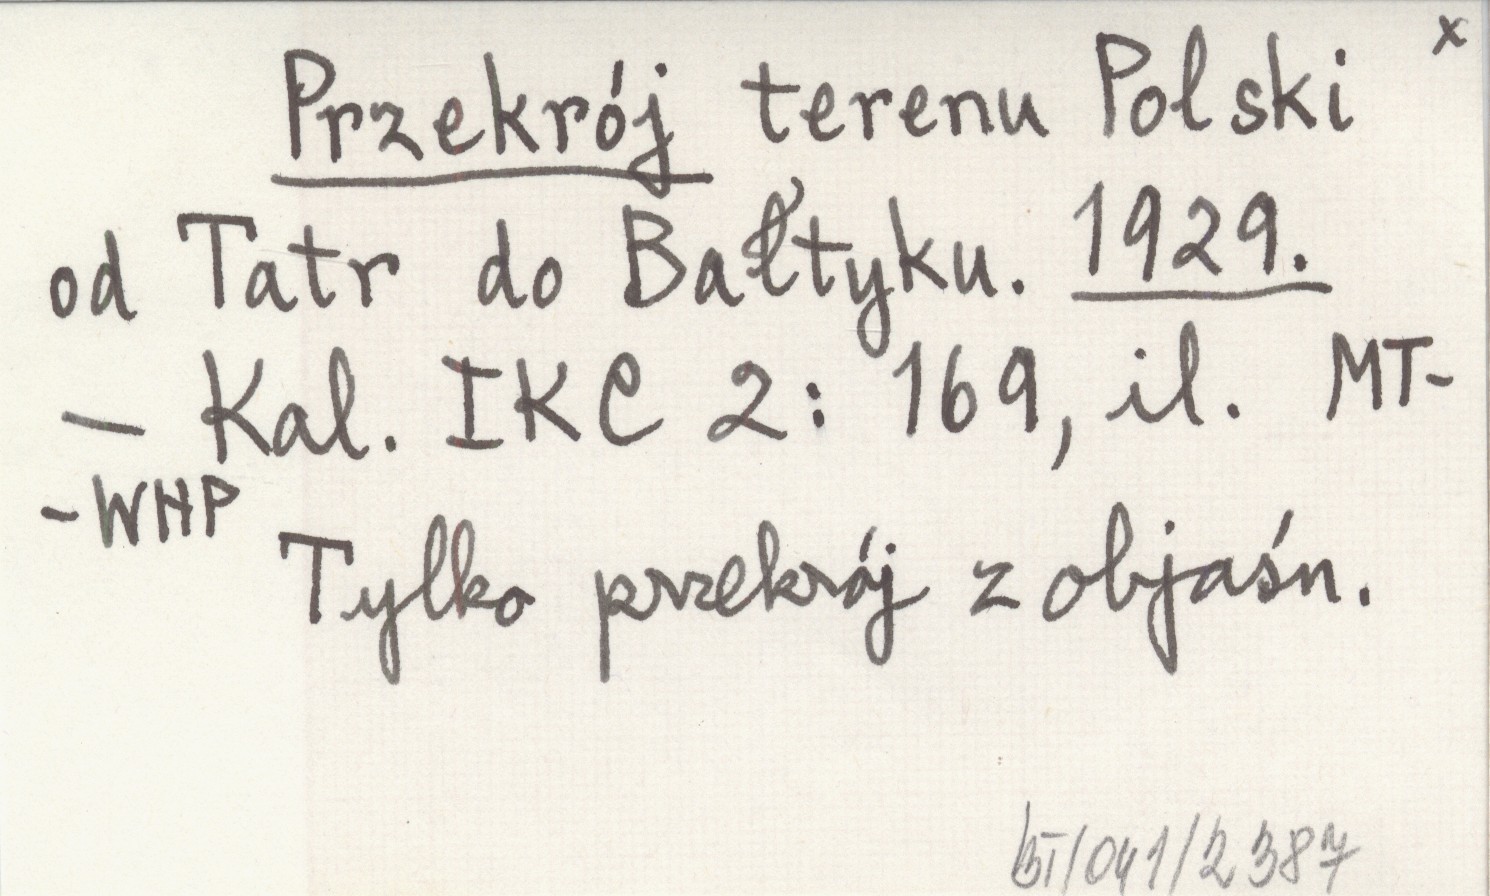 x
Przekrój terenu Polski
od Tatr do Bałtyku. 1929.
— Kal. IKC 2: 169, il. MT-
-WHP
Tylko przekrój z objaśn.
BT/041/2387